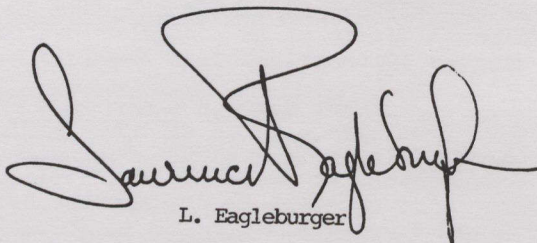 Lawrence Eagleburger
L. Eagleburger